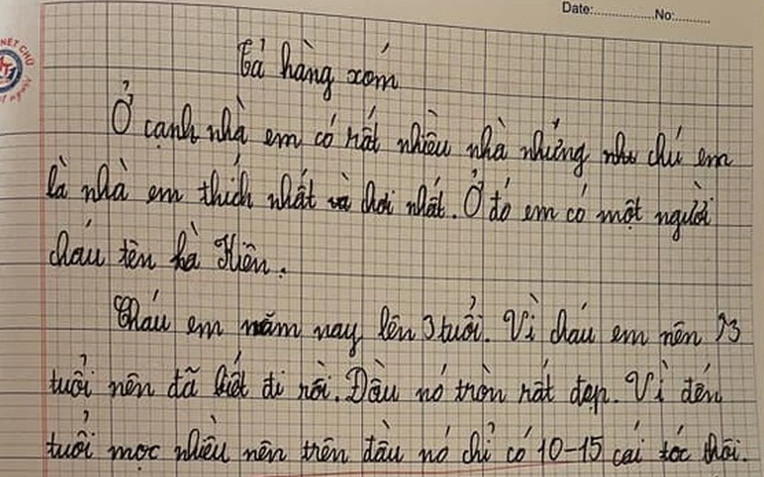 Date:................No:..........
Tả hàng xóm
Ở cạnh nhà em có rất nhiều nhà nhưng nhà chú em
là nhà em thích nhất và chơi nhất. Ở đó em có một người
cháu tên là Kiên.
Cháu em năm nay lên 3 tuổi. Vì cháu em nên 3
tuổi nên đã biết đi rồi. Đầu nó tròn rất đẹp. Vì đến
tuổi mọc nhiều nên trên đầu nó chỉ có 10-15 cái tóc thôi.